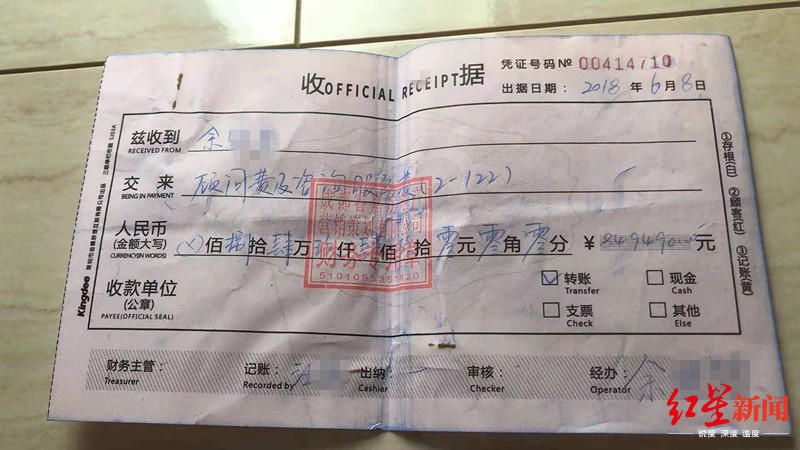 收OFFICIAL RECEIPT据
凭证号码№ 00414710
出据日期: 2018 年 6 月 8 日
兹收到 余
RECEIVED FROM
交 来 顾问费及咨询服务费(2-122)
BEING IN PAYMENT
人民币
(金额大写)
CURRENCY(IN WORDS)
(×)佰捌拾肆万玖仟肆佰 拾零元零角零分 ¥849490 元
成都
营销策划有限公司
财务专用章
5101095351820
收款单位
(公章)
PAYEE(OFFICIAL SEAL)
转账
Transfer
现金
Cash
支票
Check
其他
Else
财务主管:
Treasurer
记账:
Recorded by
出纳
Cashier
审核:
Checker
经办: 余
Operator
Kingdee
①存根(白) ②顾客(红) ③记账(黄)
红星新闻
锐度 深度 温度